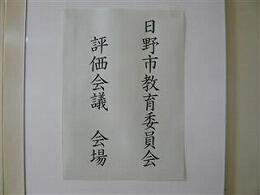 日野市教育委員会
評価会議　会場